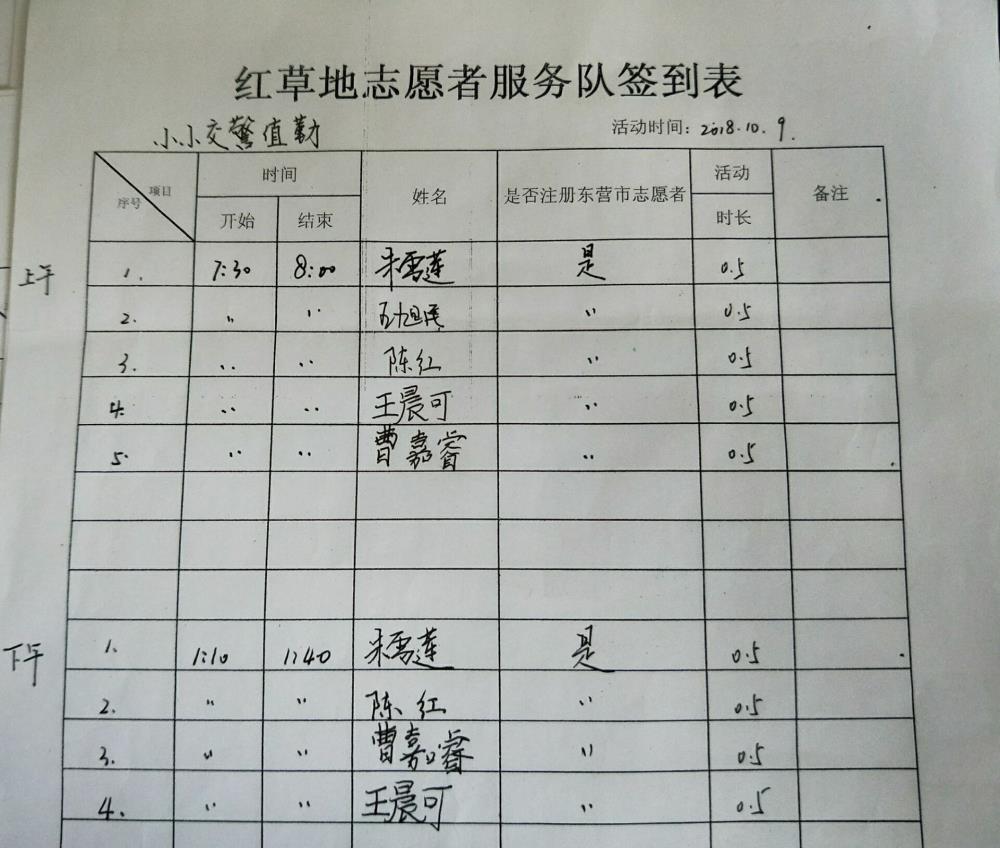 红草地志愿者服务队签到表
小小交警值勤 活动时间：2018.10.9.
项目 序号 时间 开始 结束 姓名 是否注册东营市志愿者 活动 时长 备注
上午
1. 7:30 8:00 雪莲 是 0.5
2. 〃 〃 旭民 〃 0.5
3. 〃 〃 陈红 〃 0.5
4. 〃 〃 王晨可 〃 0.5
5. 〃 〃 曹嘉睿 〃 0.5
下午
1. 1:10 1:40 雪莲 是 0.5
2. 〃 〃 陈红 〃 0.5
3. 〃 〃 曹嘉睿 〃 0.5
4. 〃 〃 王晨可 〃 0.5